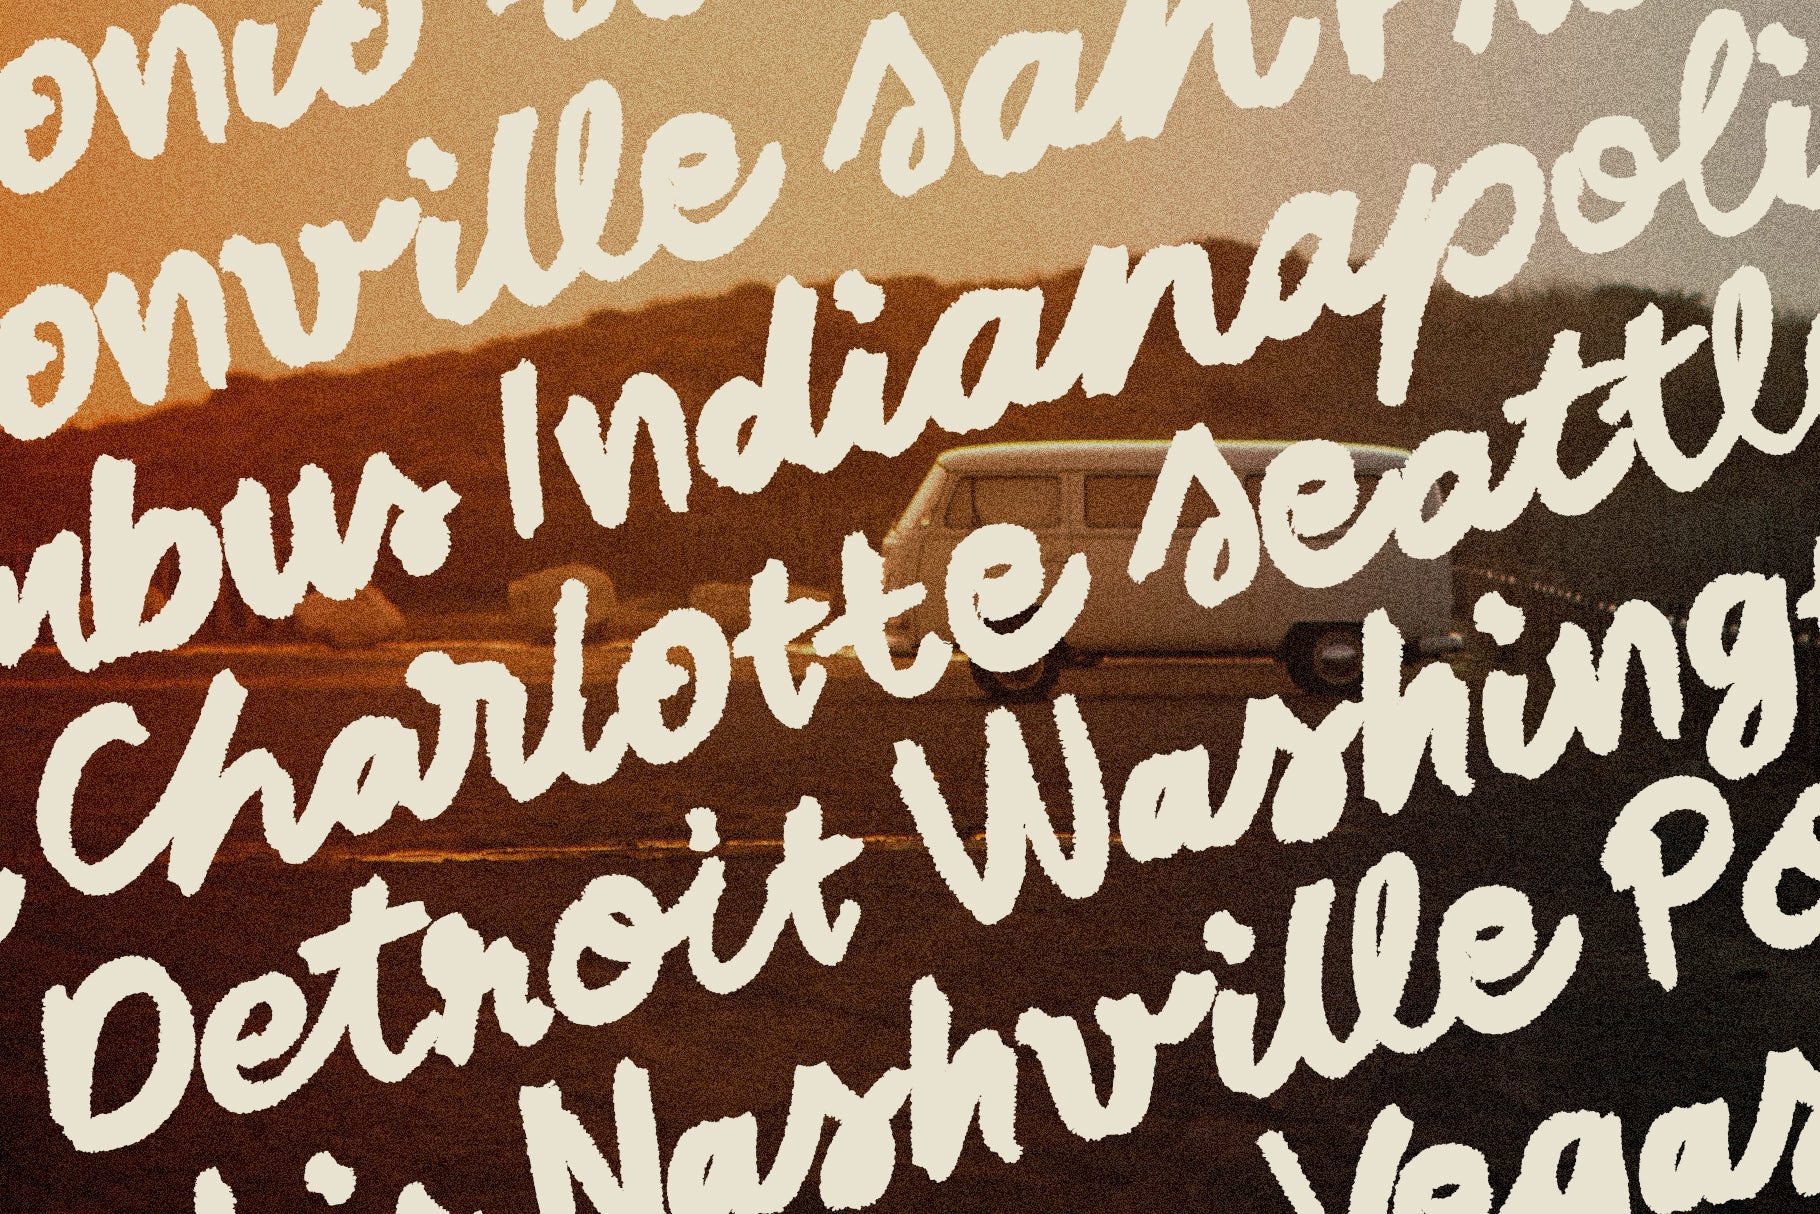 onio
onville San Fr
mbus Indianapoli
Charlotte Seattl
Detroit Washing
Nashville Po
Vegas